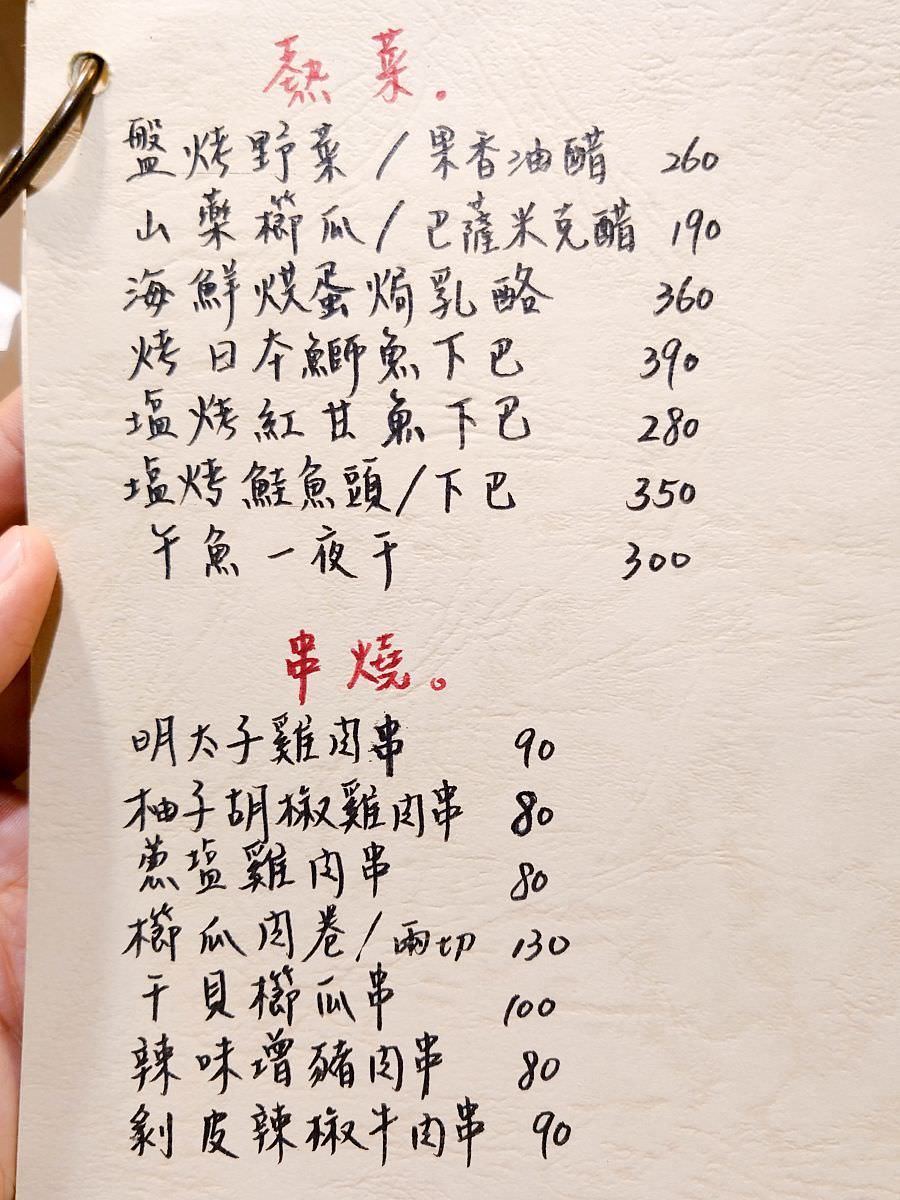 熱菜。
盤烤野菜/果香油醋 260
山藥櫛瓜/巴薩米克醋 190
海鮮烘蛋焗乳酪 360
烤日本鰤魚下巴 390
塩烤紅甘魚下巴 280
塩烤鮭魚頭/下巴 350
午魚一夜干 300
串燒。
明太子雞肉串 90
柚子胡椒雞肉串 80
蔥塩雞肉串 80
櫛瓜肉卷/兩切 130
干貝櫛瓜串 100
辣味增豬肉串 80
剝皮辣椒牛肉串 90